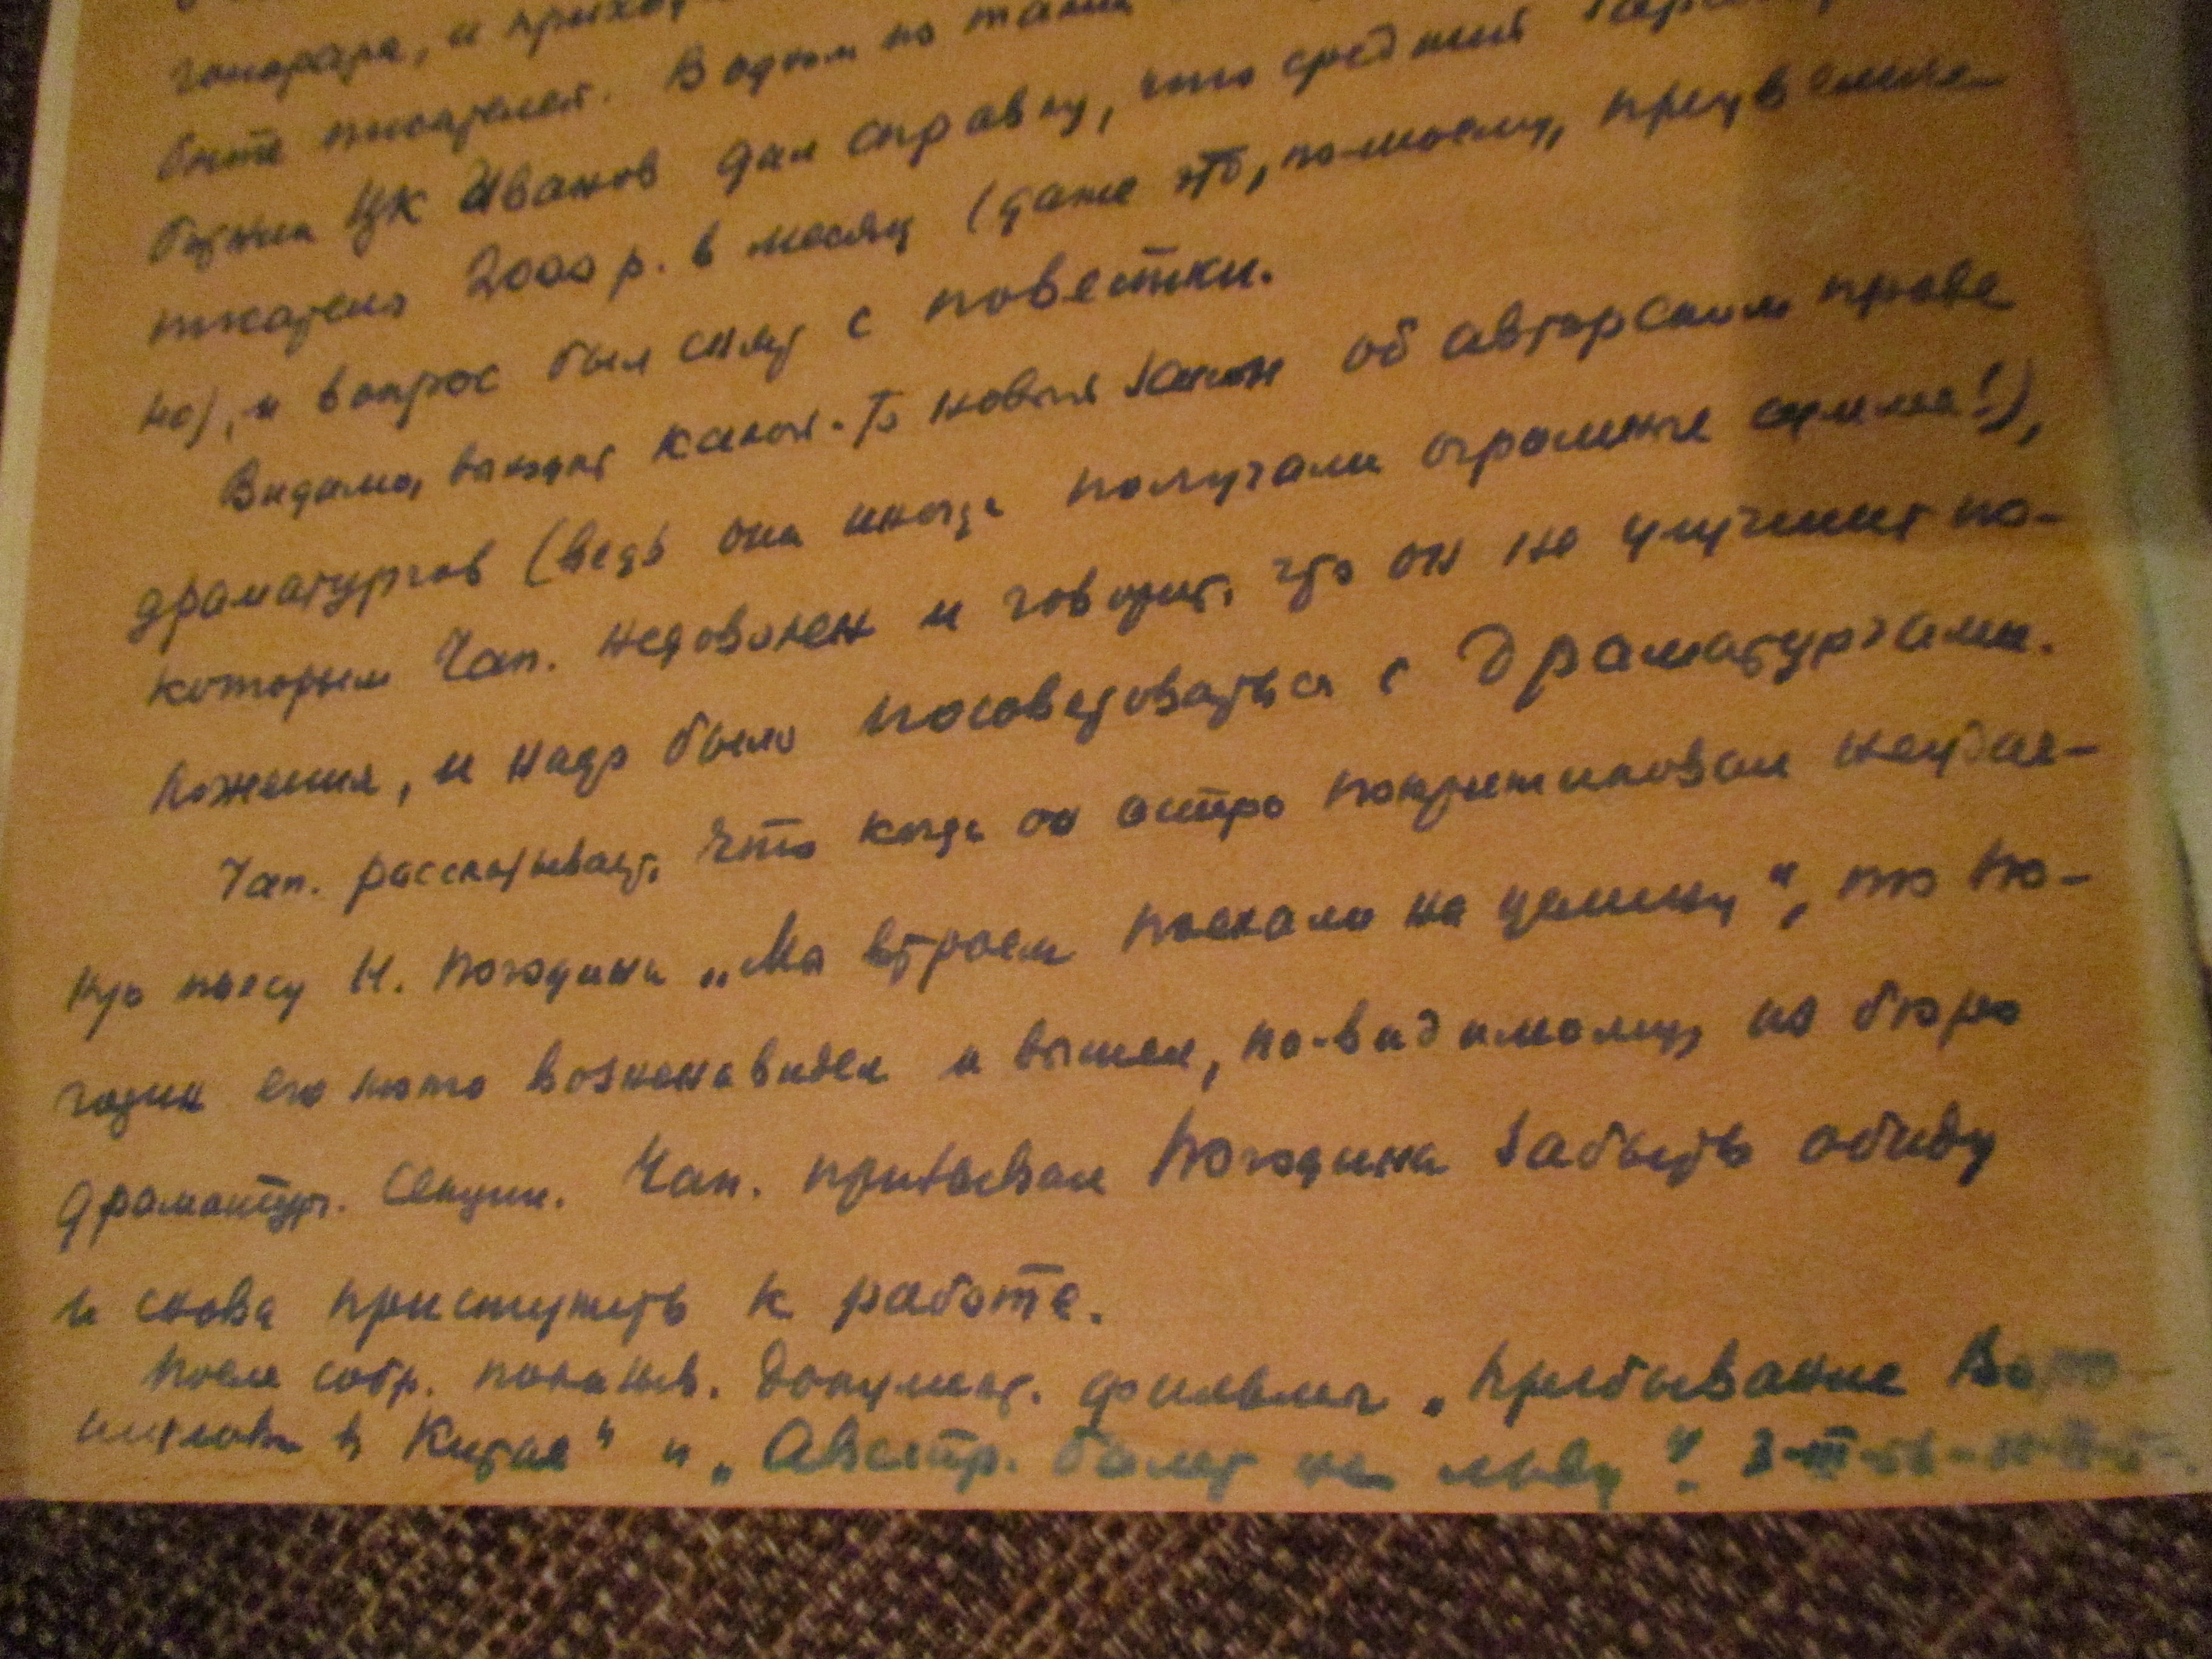 гонорара, и
быте писателей. В одном из таких
ЦК Иванов дал справку, что средний
писателя 2000 р. в месяц (даже это, по-моему, преувеличе-
но), и вопрос был снят с повестки.
Видимо, выходит какой-то новый закон об авторским праве
драматургов (ведь они иногда получали огромные суммы!),
которым Чап. недоволен и говорит, что он не улучшит по-
ложения, и надо было посоветоваться с драматургами.
Чап. рассказывает, что когда он остро покритиковал неудач-
ную пьесу Н. Погодина „Мы втроем поехали на целину", то По-
годин его люто возненавидел и вышел, по-видимому, из бюро
драматург. секции. Чап. призывал Погодина забыть обиду
и снова приступить к работе.
После собр. показыв. документ. фильмы „Пребывание Воро-
шилова в Китае" и „Австр. балет на льду".